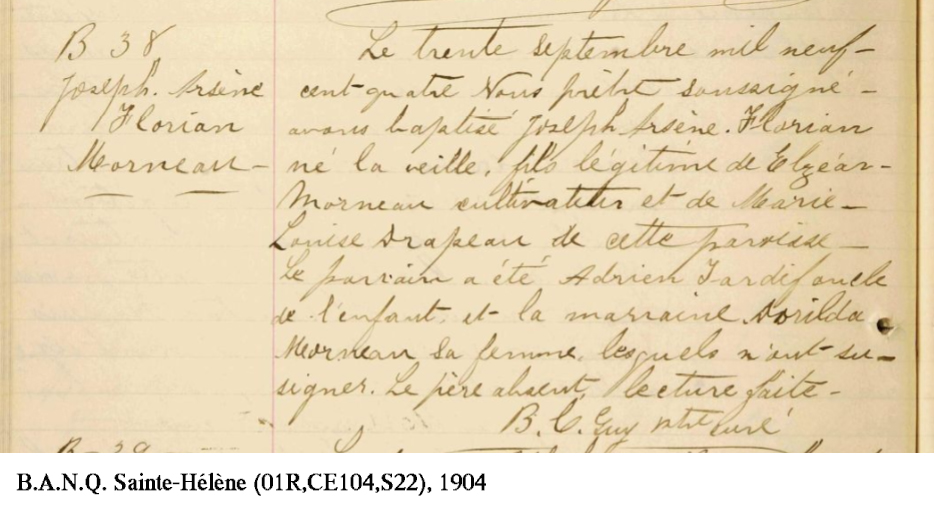 B 38
Joseph. Arsène
Florian
Morneau
Le trente septembre mil neuf-
cent-quatre Nous prêtre soussigné -
avons baptisé Joseph Arsène. Florian
né la veille, fils légitime de Elzéar-
Morneau cultivateur et de Marie-
Louise Drapeau de cette paroisse -
Le parrain a été Adrien Tardif oncle
de l'enfant. et la marraine Dorilda
Morneau sa femme, lesquels n'ont su-
signer. Le père absent, lecture faite -
B. C. Guy ptre curé
B. 39
B.A.N.Q. Sainte-Hélène (01R,CE104,S22), 1904